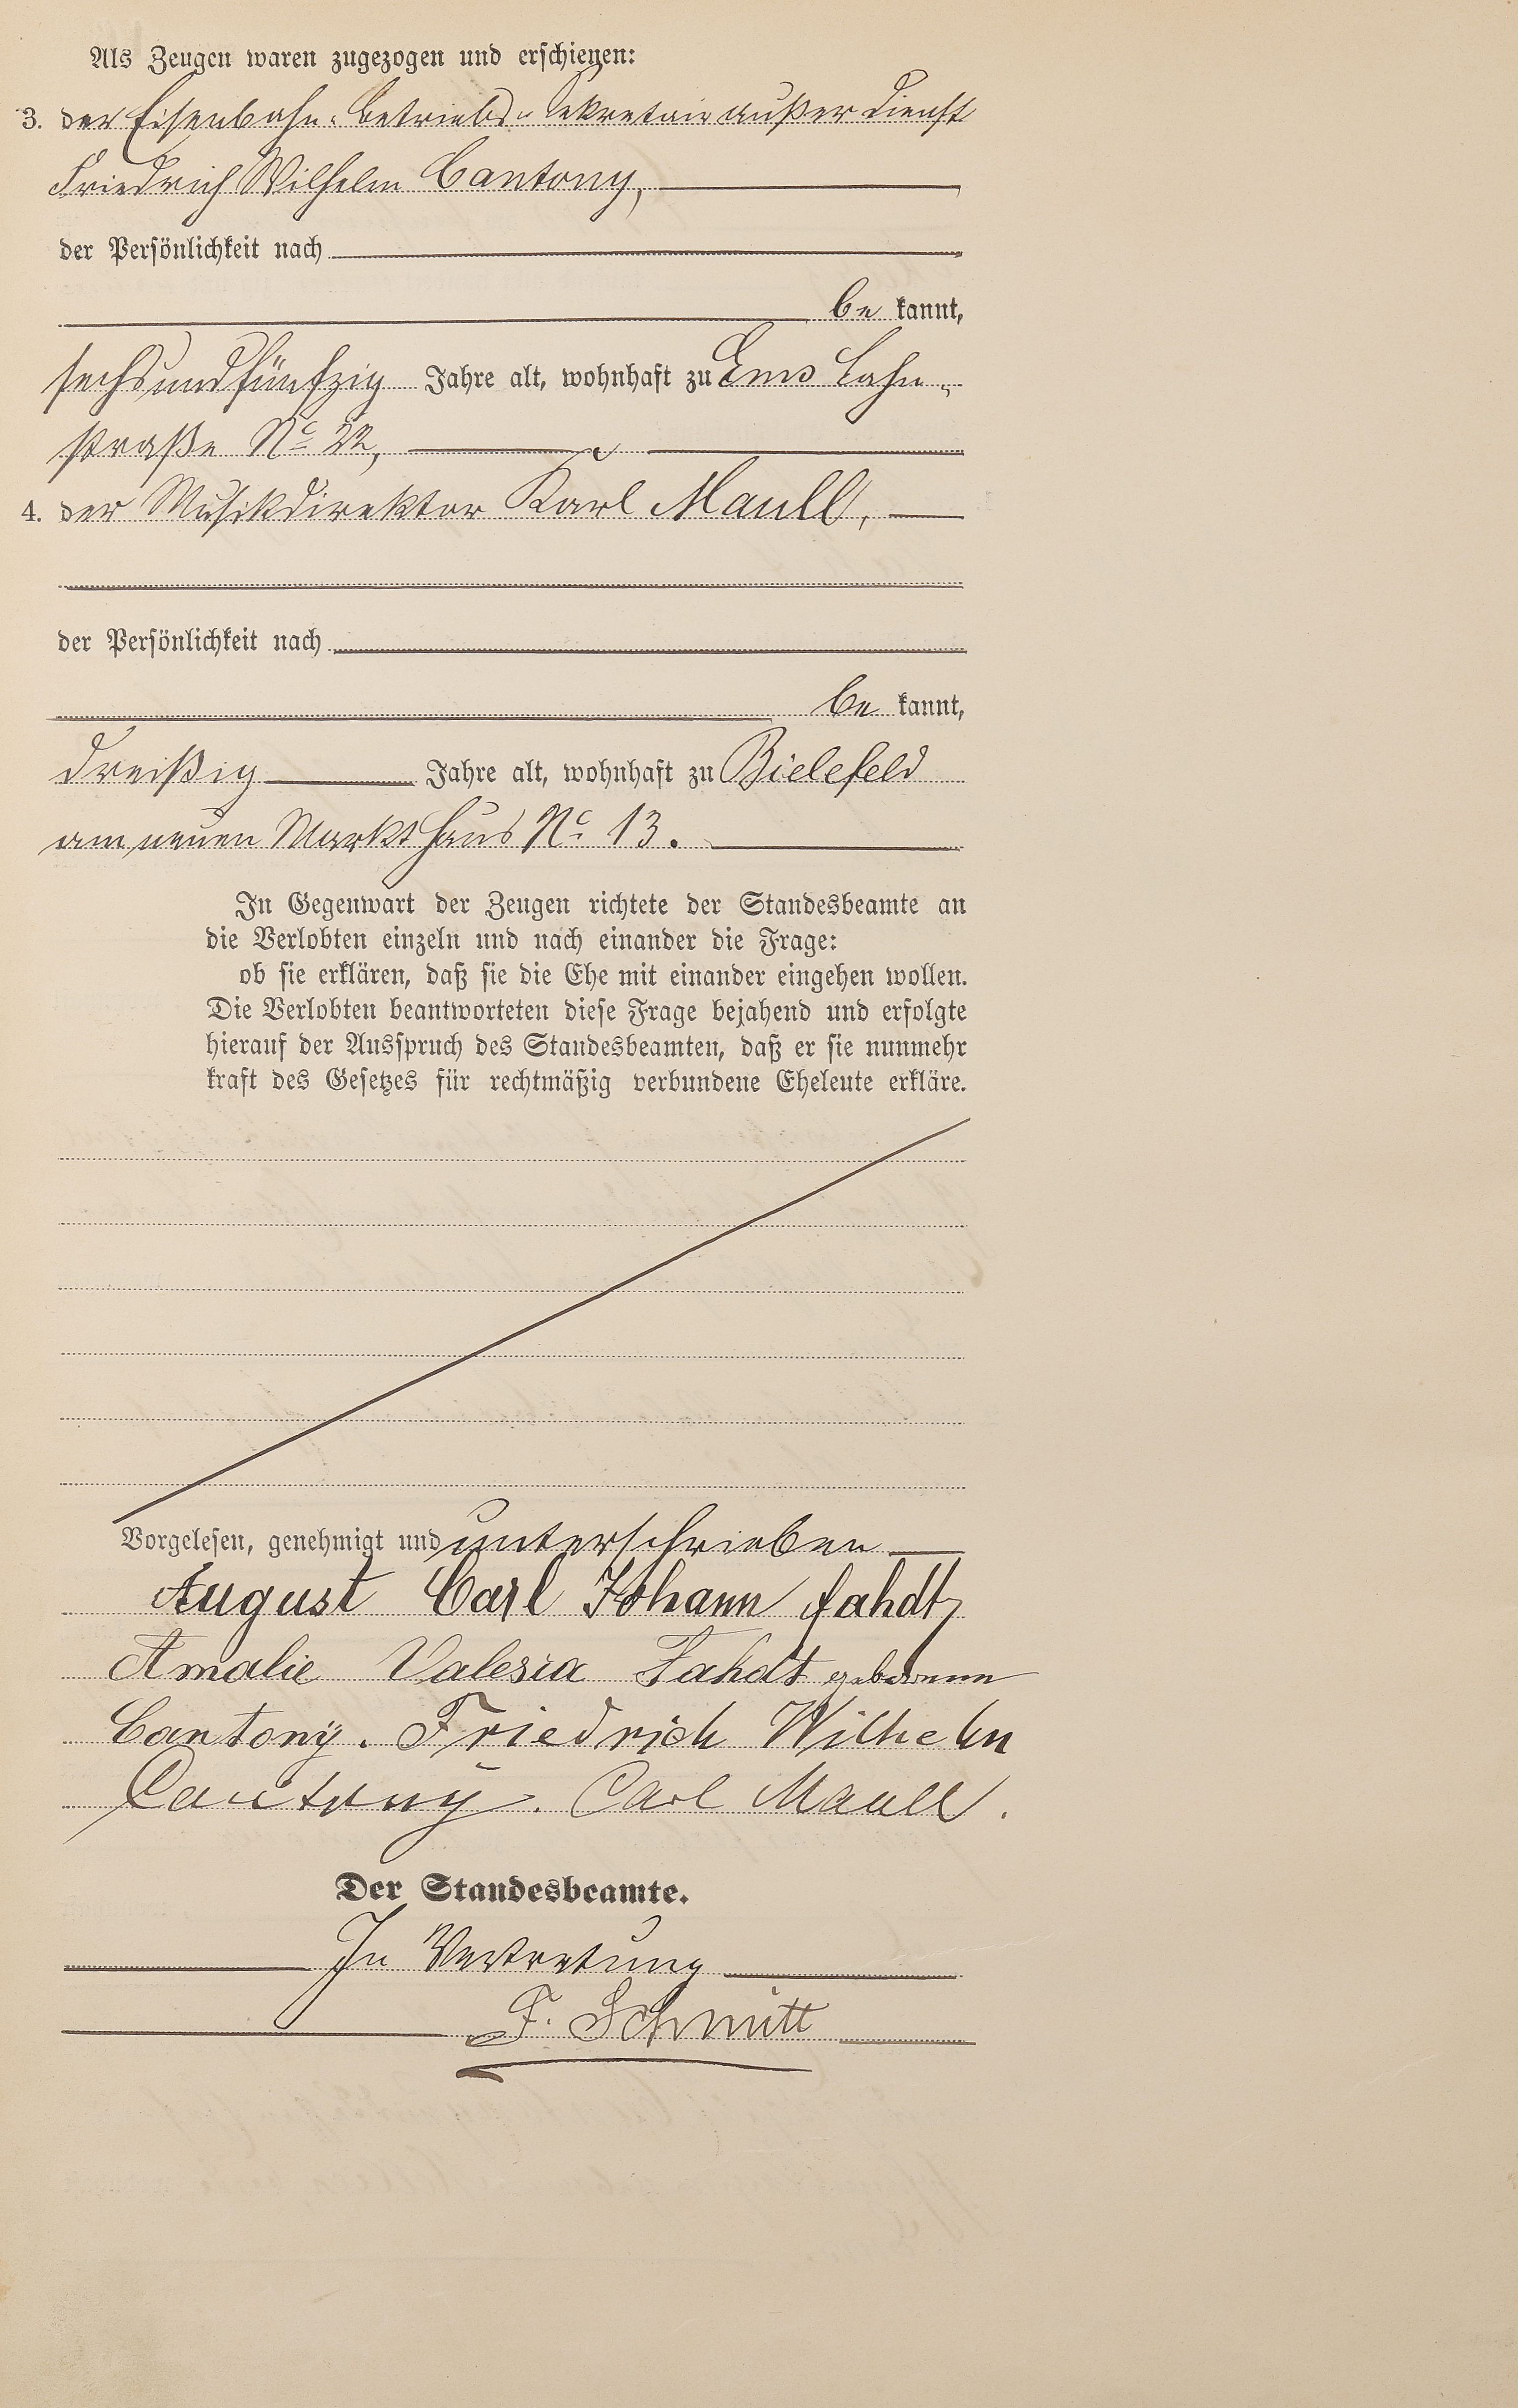 Als Zeugen waren zugezogen und erschienen:
3. der Eisenbahn-Betriebs-Sekretair außer Dienst
Friedrich Wilhelm Cantony,
der Persönlichkeit nach
be kannt,
sechsundfünfzig Jahre alt, wohnhaft zu Ems Lahn-
straße No 22,
4. der Musikdirektor Karl Maull,
der Persönlichkeit nach
be kannt,
dreißig Jahre alt, wohnhaft zu Bielefeld
am neuen Markt Haus No 13.
In Gegenwart der Zeugen richtete der Standesbeamte an
die Verlobten einzeln und nach einander die Frage:
ob sie erklären, daß sie die Ehe mit einander eingehen wollen.
Die Verlobten beantworteten diese Frage bejahend und erfolgte
hierauf der Ausspruch des Standesbeamten, daß er sie nunmehr
kraft des Gesetzes für rechtmäßig verbundene Eheleute erkläre.
Vorgelesen, genehmigt und unterschrieben
August Carl Johann Fahdt,
Amalie Valesia Fahdt geborenen
Cantony. Friedrich Wilhelm
Cantony. Carl Maull.
Der Standesbeamte.
In Vertretung
F. Schmitt